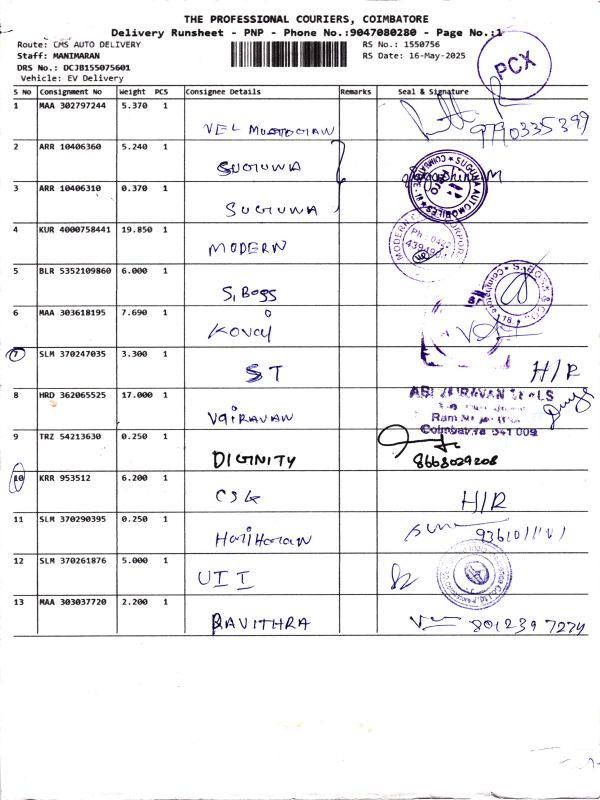 THE PROFESSIONAL COURIERS, COIMBATORE
Delivery Runsheet - PNP - Phone No.:9047080280 - Page No.:1
Route: CMS AUTO DELIVERY RS No.: 1550756
Staff: MANIMARAN RS Date: 16-May-2025
DRS No.: DCJB155075601
Vehicle: EV Delivery
PCX
S No Consignment No Weight PCS Consignee Details Remarks Seal & Signature
1 MAA 302797244 5.370 1
9790335399
2 ARR 10406360 5.240 1 SUGUNA
SUGUNA AUTOMOBILES COIMBATORE
3 ARR 10406310 0.370 1 SUGUNA
4 KUR 4000758441 19.850 1 MODERN
MODERN
5 BLR 5352109860 6.000 1 S, Bogs
6 MAA 303618195 7.690 1
7 SLM 370247035 3.300 1 ST H/R
8 HRD 362065525 17.000 1 VAIRAVAN
Coimbatore 641 009
9 TRZ 54213630 0.250 1 DIGINITY 8668029208
10 KRR 953512 6.200 1 H/R
11 SLM 370290395 0.250 1 HariHaran
12 SLM 370261876 5.000 1 UTI
13 MAA 303037720 2.200 1 PAVITHRA 8012397274